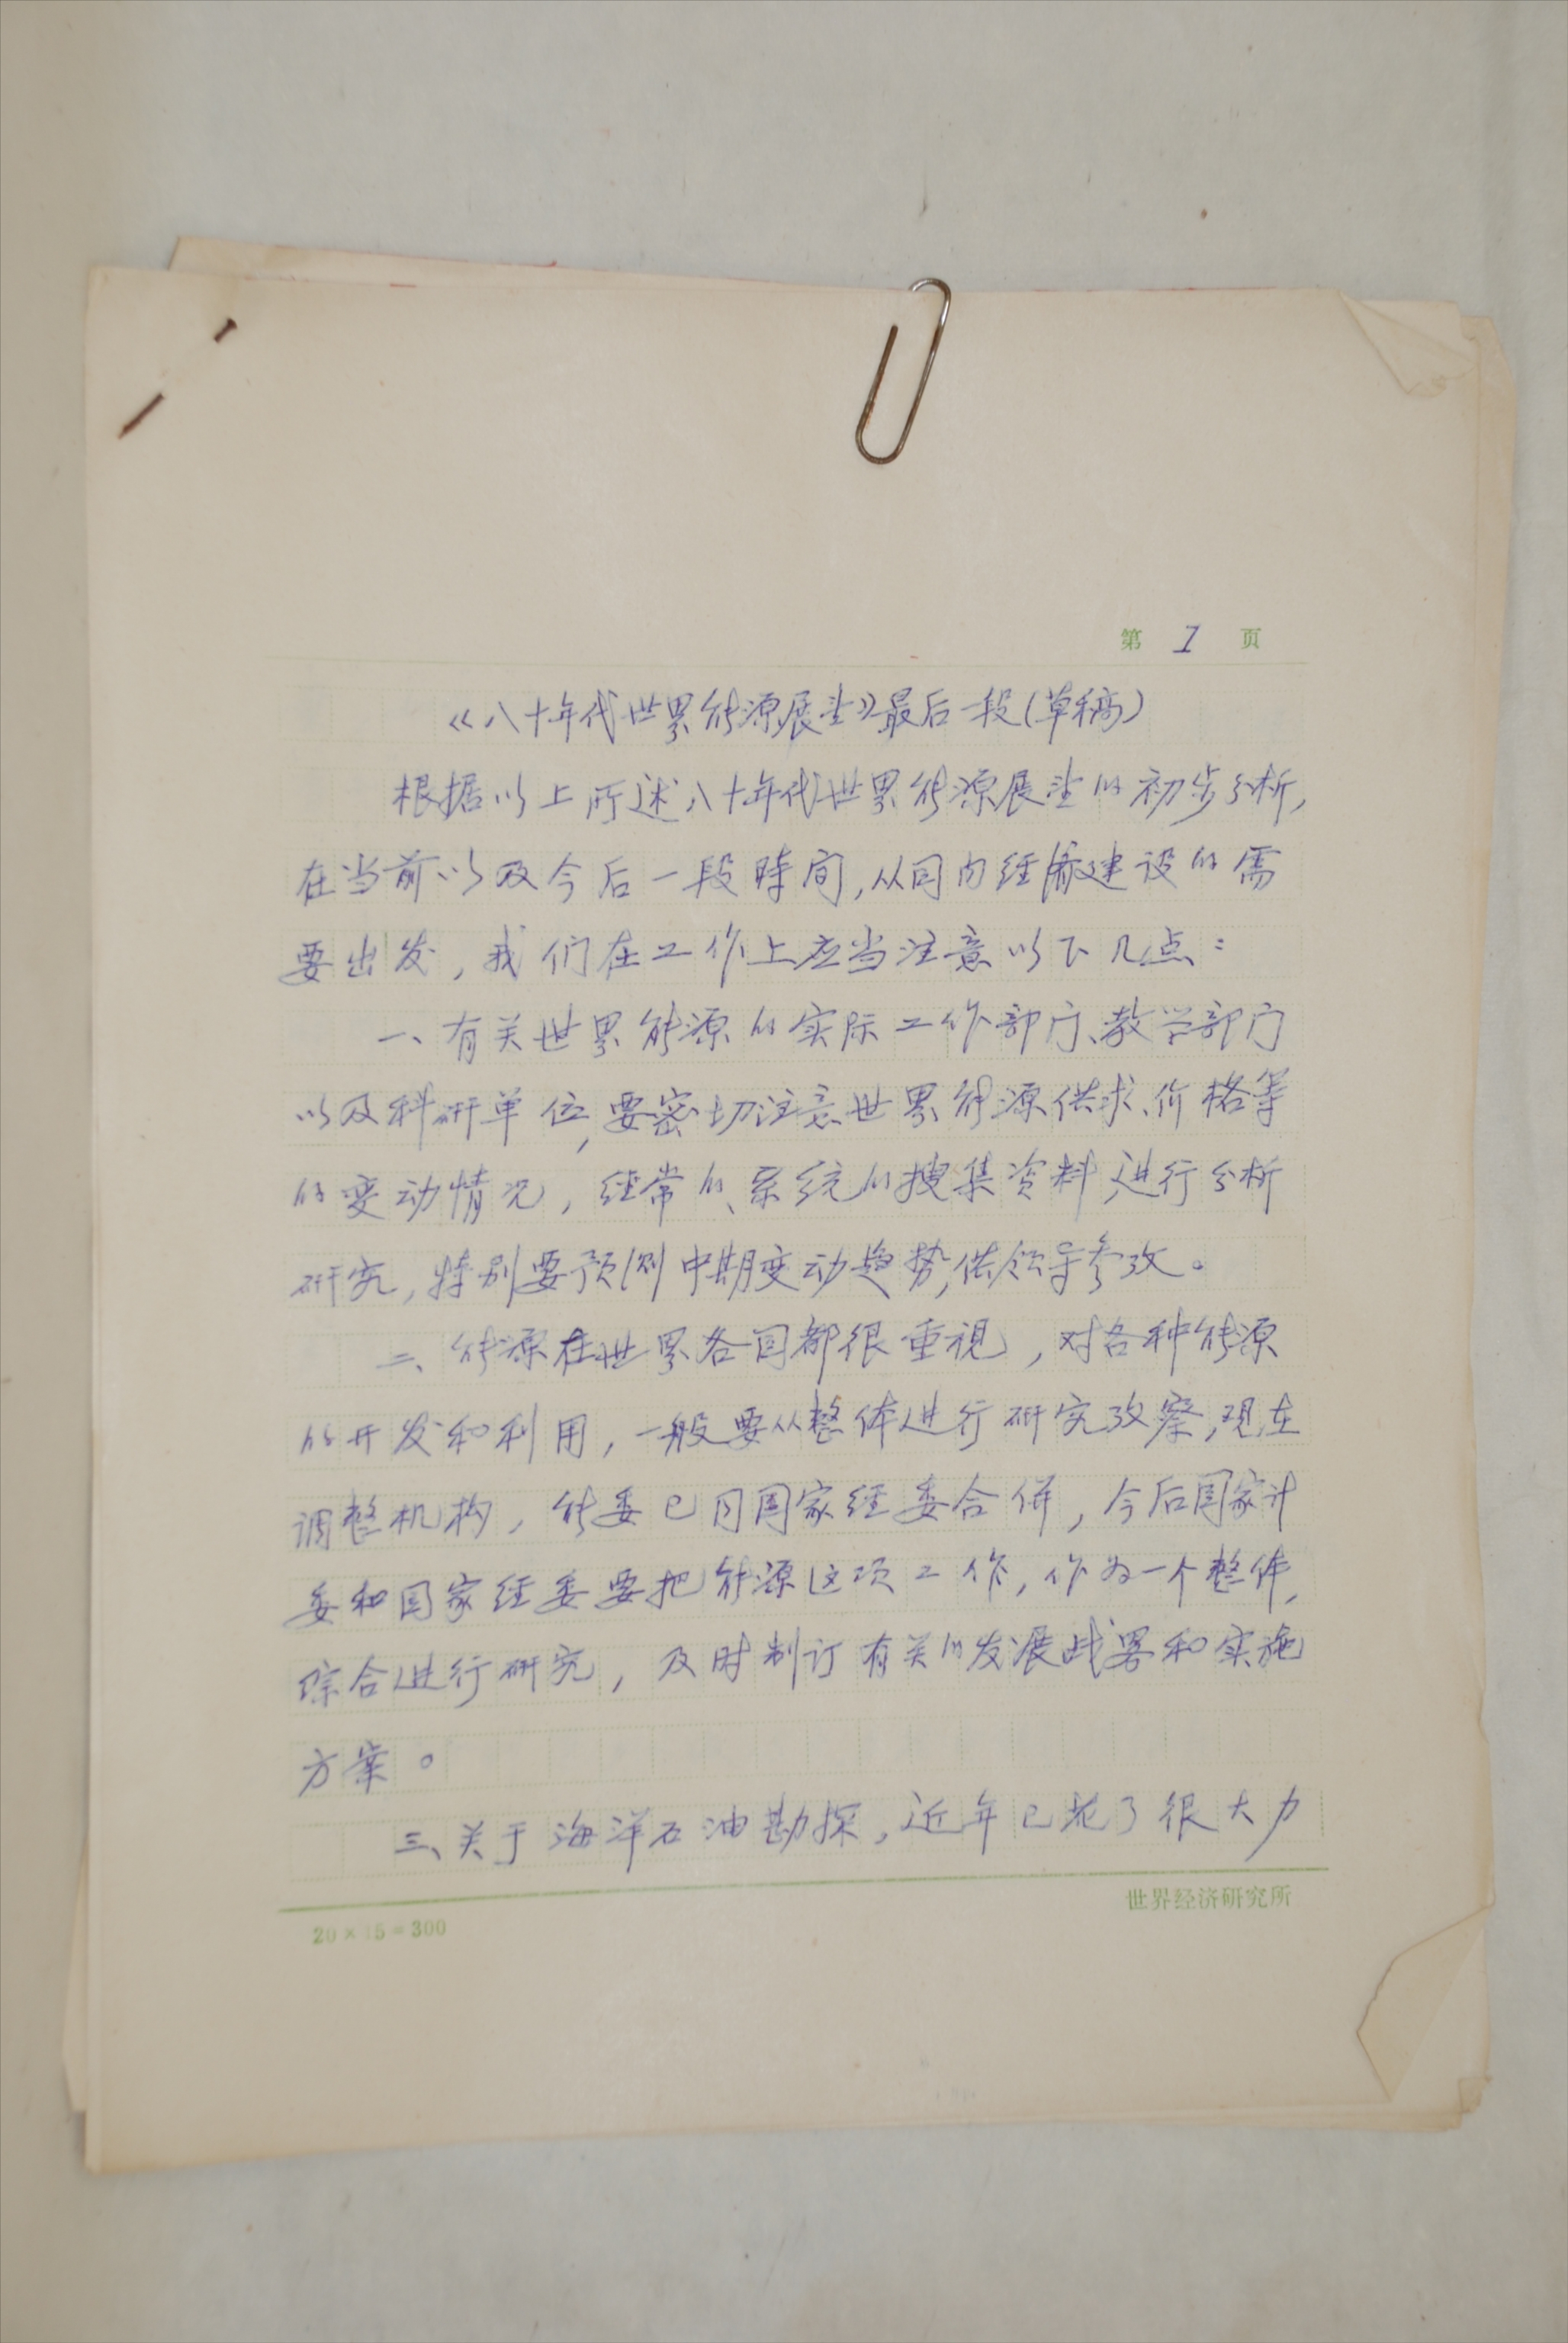 第 1 页
《八十年代世界能源展望》最后一段(草稿)
根据以上所述八十年代世界能源展望的初步分析,
在当前以及今后一段時间,从囯内经济建设的需
要出发,我们在工作上应当注意以下几点:
一、有关世界能源的实际工作部门、教学部门
以及科研单位,要密切注意世界能源供求、价格等
的变动情况,经常的、系统的搜集资料,进行分析
研究,特别要预测中期变动趋势,供领导参攷。
二、能源在世界各囯都很重視,对各种能源
的开发和利用,一般要从整体进行研究攷察,现在
调整机构,能委已同国家经委合併,今后国家计
委和国家经委要把能源这项工作,作为一个整体,
综合进行研究,及时制订有关的发展战畧和实施
方案。
三、关于海洋石油勘探,近年已花了很大力
20×15=300
世界经济研究所